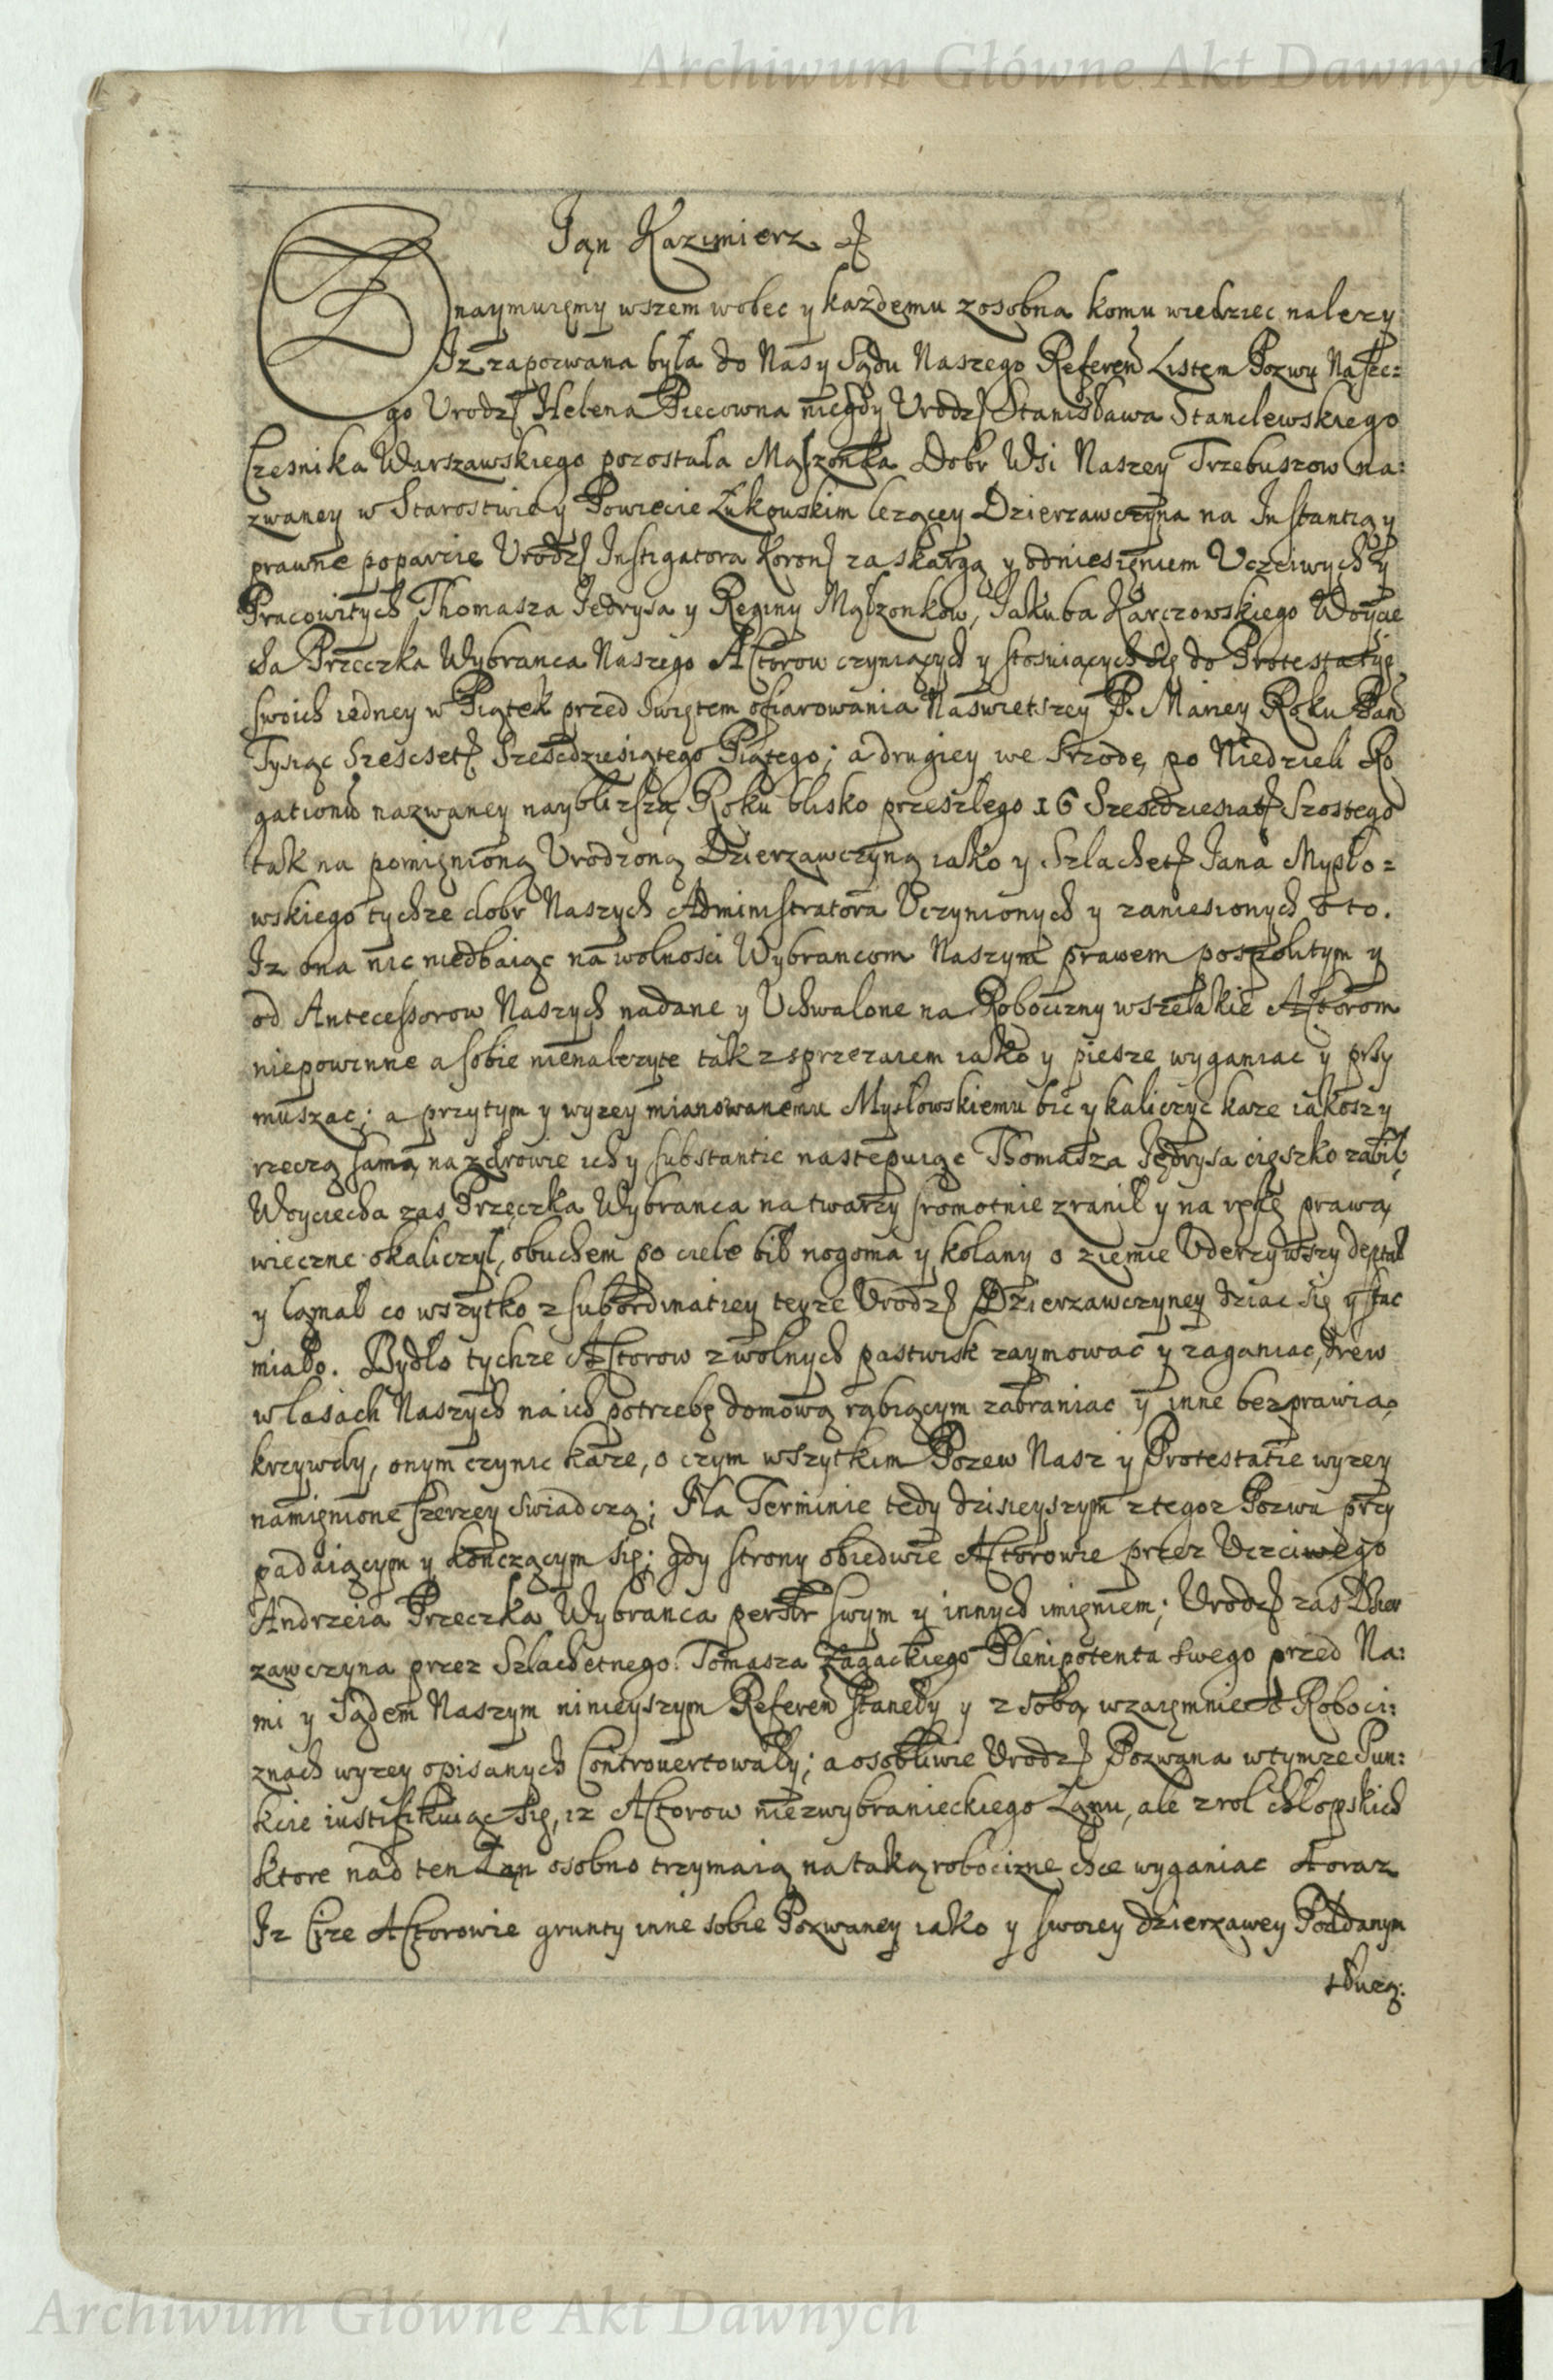 Archiwum Główne Akt Dawnych
Jan Kazimierz
Znaymuięmy wszem wobec y każdemu zosobna komu wiedziec nalezy
Iz zapozwana była do Nas y Sądu Naszego Referen Listem Pozwu Nasze:
go Urodz Helena Piecowna niegdy Urodz Stanisława Stanclewskiego
Czesnika Warszawskiego pozostała Małzonka Dobr Wsi Naszey Trzebuszow na:
zwaney w Starostwie y Powiecie Łukowskim lezącey Dzierzawczyna na Instantią y
prawne poparcie Urodz Instigatora Koron za skargą y odniesięniem Uczciwych y
Pracowitych Thomasza Jędrysa y Reginy Małzonkow, Jakuba Karczowskiego Woycie
cha Przeczka Wybranca Naszego Actorow czyniących y stosuiących się do Protestatyi
swoich iedney w Piątek przed Swiętem ofiarowania Naswietszey P. Mariey Roku Pan
Tysiąc Szescset Szescdziesiątego Piątego; a drugiey we Srzode po Niedzieli Ro
gationu nazwaney naybliższą Roku blisko przeszłego 16 Szescdziesiąt Szostego
tak na pomięnioną Urodzoną Dzierzawczyną iako y Szlachet Jana Mysło=
wskiego tychze dobr Naszych Administratora Uczynionych y zaniesionych o to.
Iz ona nic niedbaiąc na wolnosci Wybrancom Naszym prawem pospolitym y
od Antecessorow Naszych nadane y Uchwalone na Robocizny wszelakie Actorom
niepowinne a sobie nienależyte tak z sprzezaiem iako y piesze wyganiac y przy
muszac; a przytym y wyzey mianowanemu Mysłowskiemu bic y kaliczyc kaze iakosz y
rzeczą samą na zdrowie ich y substantie nastepuiąc Thomasza Jędrysa cięszko zabił,
Woyciecha zas Przęczka Wybranca na twarzy sromotnie zranił y na rękę prawą
wieczne okaliczył, obuchem po ciele bił nogoma y kolany o ziemie Uderzywszy deptał
y łamał co wszytko z subordinatiey teyze Urodz Dzierzawczyney dziac się y stac
miało. Bydło tychze Actorow z wolnych pastwisk zaymowac y zaganiac, drew
w lasach Naszych na ich potrzebę domową rąbiącym zabraniac y inne bezprawia
krzywdy, onym czynic kaze, o czym wszytkim Pozew Nasz y Protestatie wyzey
namięnione szerzey swiadczą; Na Terminie tedy dzisieyszym z tegoz Pozwu przy
padaiącym y kończącym się; gdy strony obiedwie Actorowie przez Uczciwego
Andrzeia Przeczka Wybranca swym y innych imięniem; Urodz zas Dzier
zawczyna przez Szlachetnego Tomasza Zagackiego Plenipotenta swego przed Na:
mi y Sądem Naszym ninieyszym Referen staneły y z sobą wzaięmnie o Roboci:
znach wyzey opisanych Controvertowały; a osobliwie Urodz Pozwana w tymze Pun:
kcie iustifikuiąc się, iz Actorow nie z wybranieckiego Łanu, ale z rol chłopskich
ktore nad ten Łan osobno trzymaią na taką robocizne chce wyganiac A oraz
Iz Cize Actorowie grunty inne sobie Pozwaney iako y swoiey dzierzawey Poddanym
słuzą:
Archiwum Główne Akt Dawnych